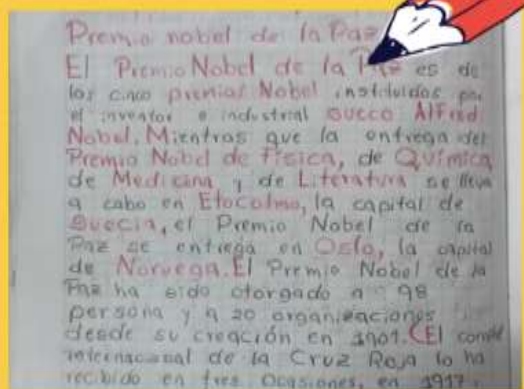 Premio nobel de la Paz
El Premio Nobel de la Paz es de
los cinco premios Nobel instituidos por
el inventor e industrial sueco Alfred
Nobel. Mientras que la entrega del
Premio Nobel de Física, de Química
de Medicina y de Literatura se lleva
a cabo en Etocolmo, la capital de
Suecia, el Premio Nobel de la
Paz se entrega en Oslo, la capital
de Noruega. El Premio Nobel de la
Paz ha sido otorgado a 98
persona y a 20 organizaciones
desde su creación en 1901. (El comité
internacional de la Cruz Roja lo ha
recibido en tres Ocasiones, en 1917